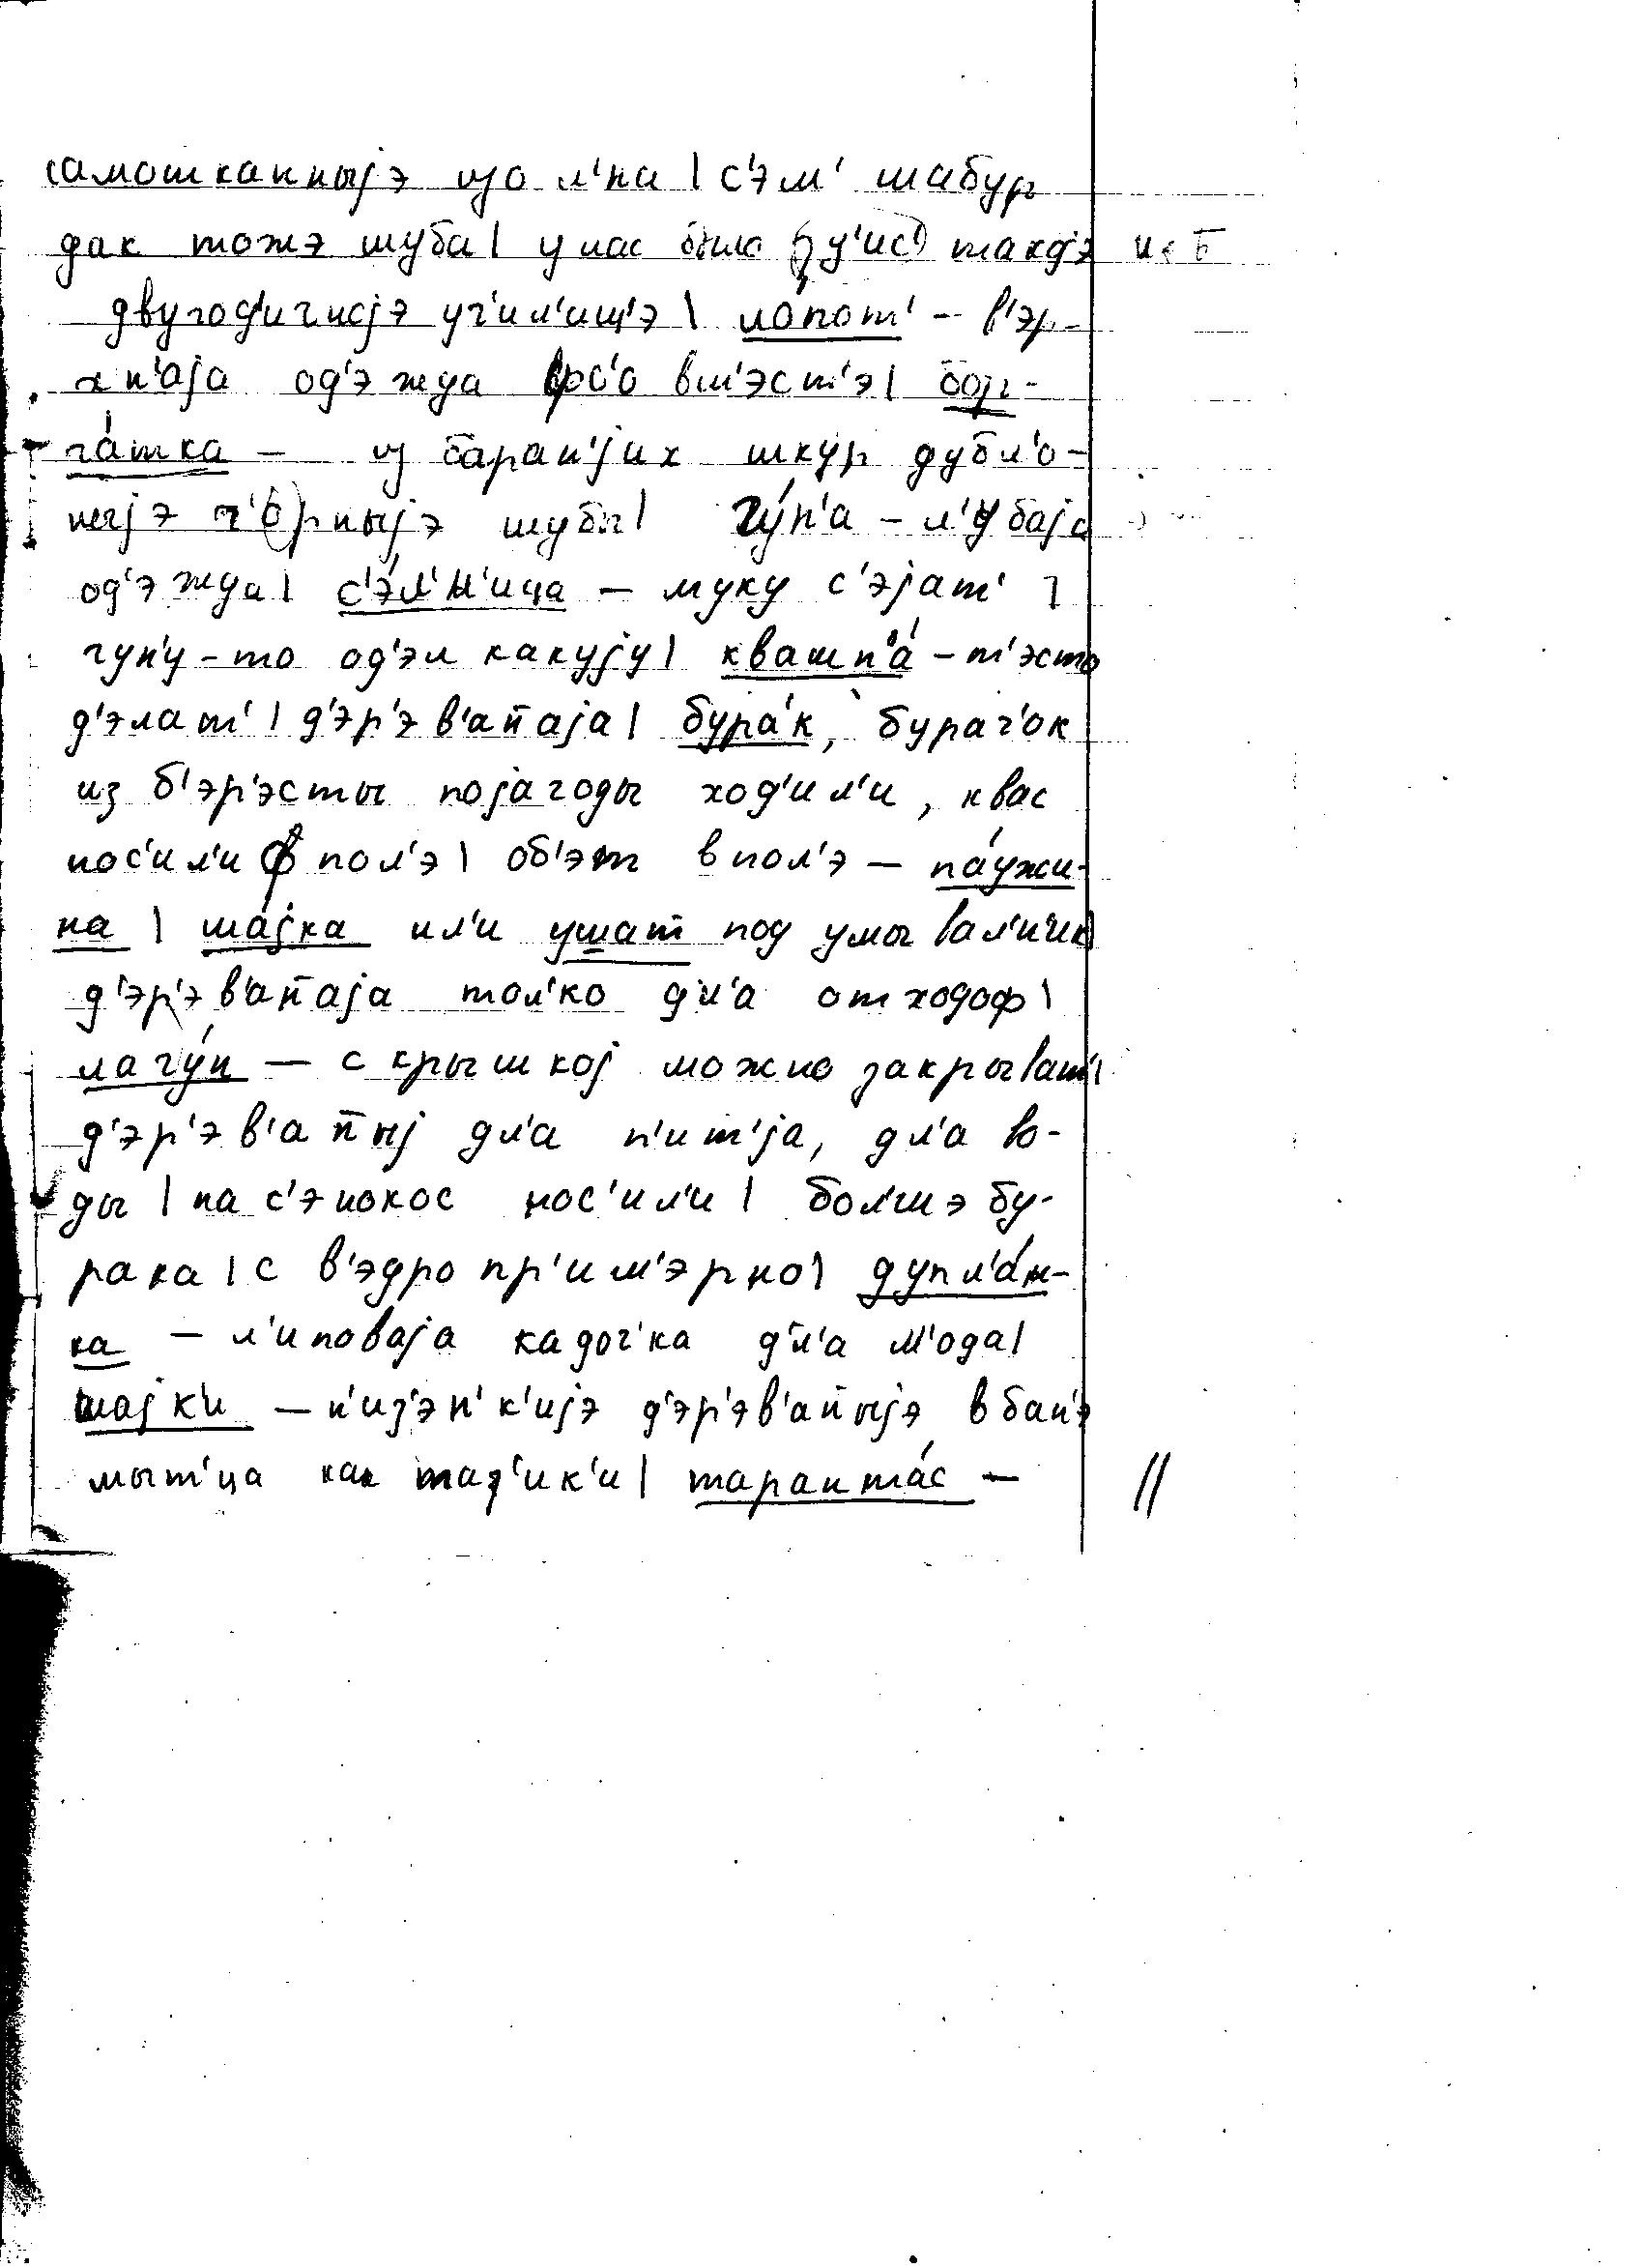 самотканныјэ изо л'на | с'эм' шабур
дак тожэ шуба | у нас было таког'э
двугод'ичнојэ уч'ил'ищ'э | ло́пот' – в'эр-
хн'аја од'эжда вс'о вм'эст'э | бор-
ча́тка – из баран'јих шкур дубл'о-
ныјэ ч'о́рныјэ шубы | гу́н'а – л'убаја
од'эжда | с'э́л'н'ица – муку с'эјат' |
гун'у-то од'эл какују | квашн'а́ – т'эсто
д'элат' | д'эр'эв'ан̄аја | бура́к, бурач'ок
из б'эр'эсты појагоды ход'ил'и, квас
нос'ил'и ф пол'э | об'эт в пол'э – па́ужи-
на | ша́јка ил'и ушат под умывал'н'ик
д'эр'эв'ан̄аја тол'ко дл'а отходоф |
лагу́н – с крышкој можно закрыват' |
д'эр'эв'ан̄ыј дл'а п'ит'ја, дл'а во-
ды | на с'энокос нос'ил'и | бол'шэ бу-
рака | с в'эдро пр'им'эрно | дупл'а́н-
ка – л'иповаја кадоч'ка дл'а м'ода |
шајк'и – н'из'эн'к'ијэ д'эр'эв'ан̄ыјэ в бан'э
мыт'ца как таз'ик'и | таранта́с –
//